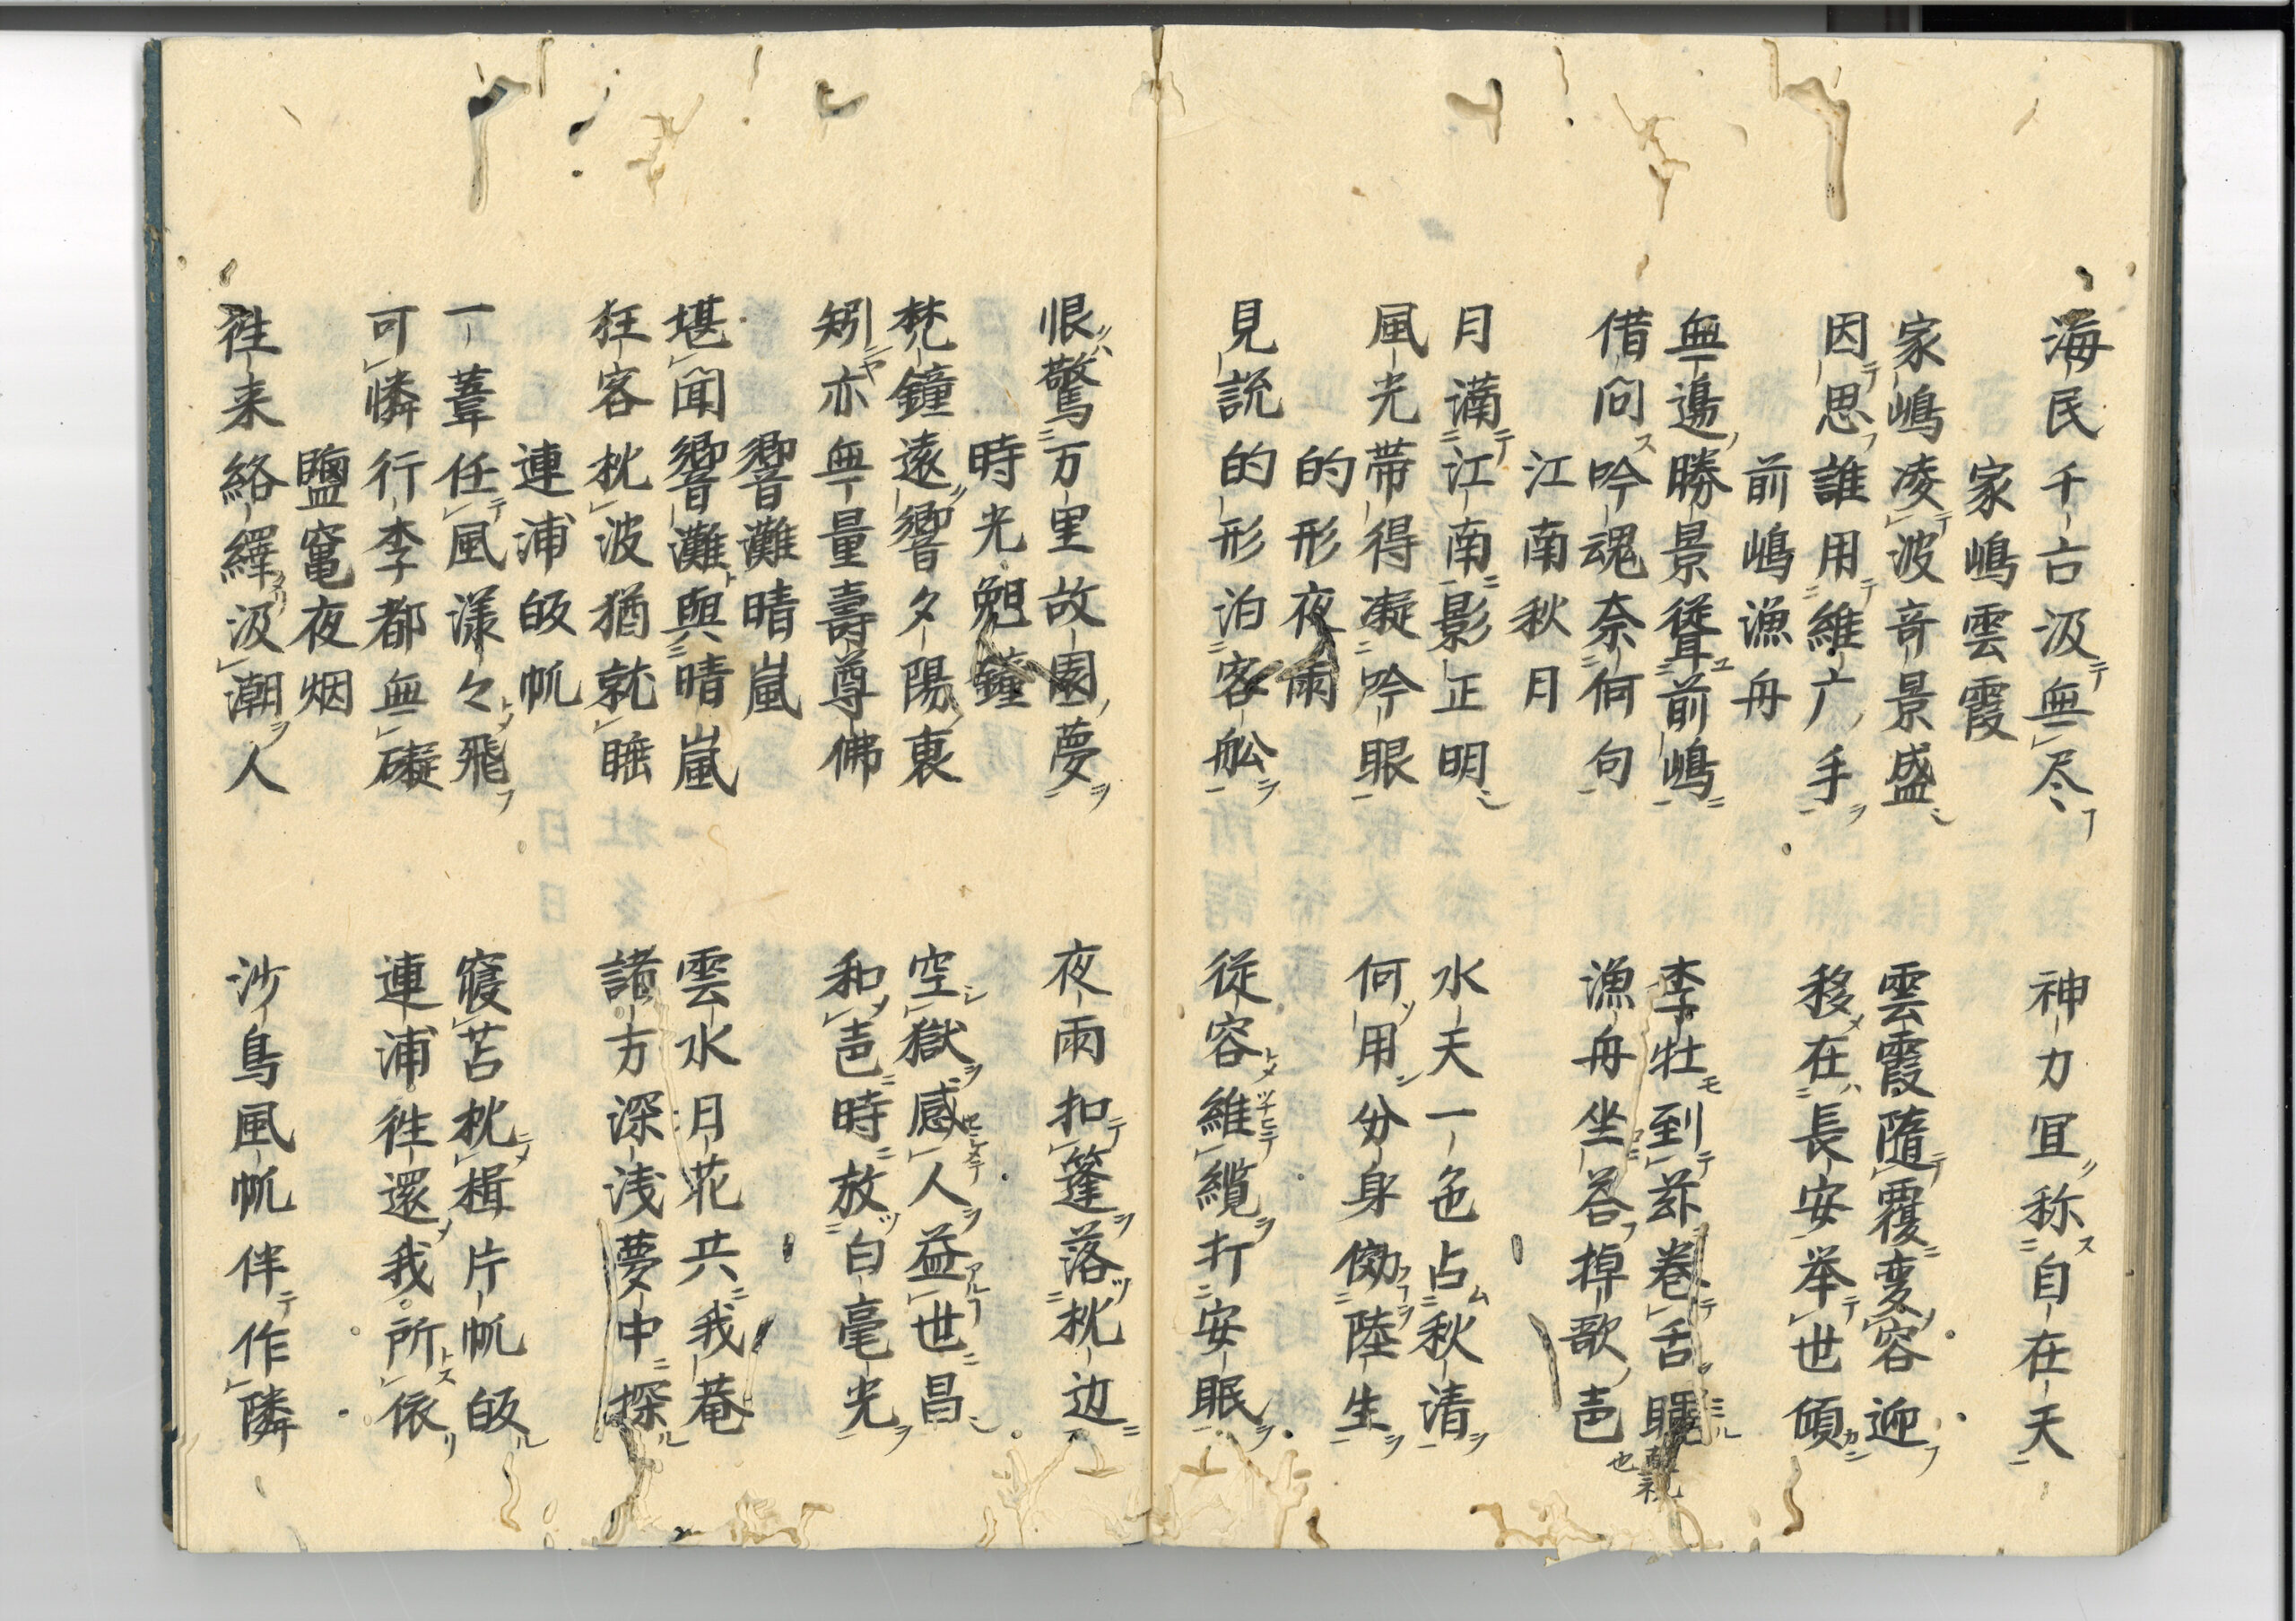 海民千古汲無尽 神力冝称自在天
家嶋雲霞
家嶋凌波奇景盛 雲霞随覆変容迎
因思誰用維广手 移在長安举世傾
前嶋漁舟
無邊勝景聳前嶋 李牡到玆巻舌
借问吟魂奈何句 漁舟坐答掉歌声
江南秋月
月満江南影正明 水天一色占秋清
風光帯得凝吟眼 何用分身傚陸生
的形夜雨
見説的形泊客舩 従容維纜打安眠
恨驚万里故園夢 夜雨扣篷落枕边
時光晩鐘
梵鐘遠響夕陽裏 空獄感人益世昌
矧亦無量壽尊佛 和声時放白毫光
響灘晴嵐
堪聞響灘與晴嵐 雲水日花共我菴
狂客枕波猶就睡 諸方深浅夢中探
連浦皈帆
一葦任風漾々飛 寝苫枕楫片帆皈
可憐行李都無礙 連浦徃還我所依
鹽竃夜烟
徃来絡繹汲潮人 沙鳥風帆伴作隣